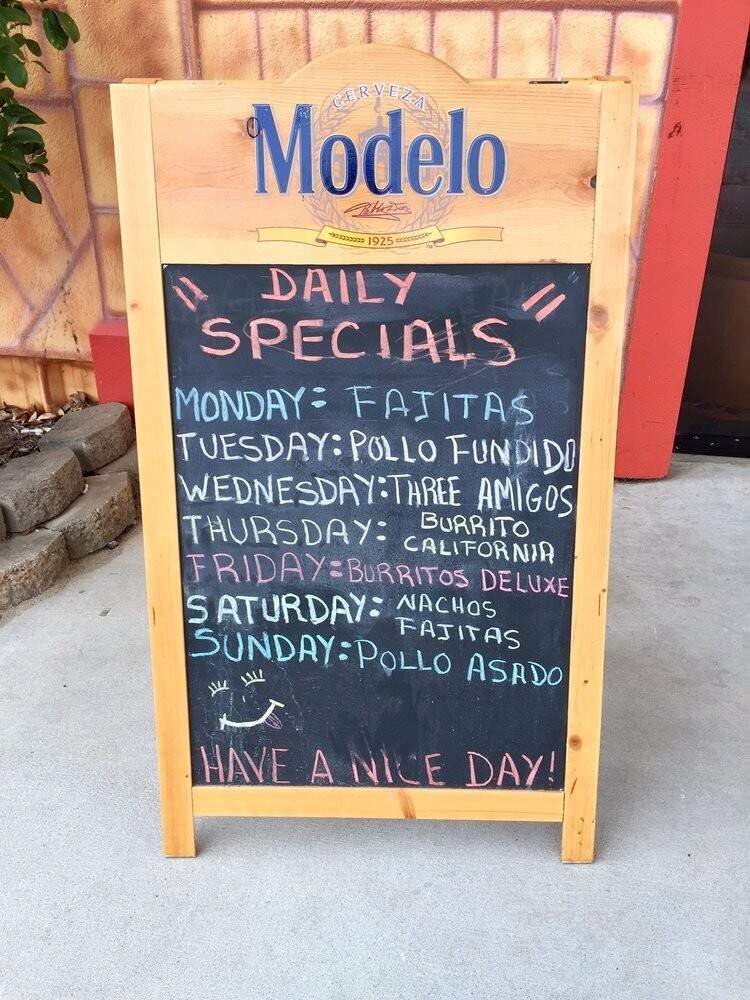 CERVEZA
Modelo
1925
" DAILY "
SPECIALS
MONDAY: FAJITAS
TUESDAY: POLLO FUNDIDO
WEDNESDAY: THREE AMIGOS
THURSDAY: BURRITO
CALIFORNIA
FRIDAY: BURRITOS DELUXE
SATURDAY: NACHOS
FAJITAS
SUNDAY: POLLO ASADO
HAVE A NICE DAY!